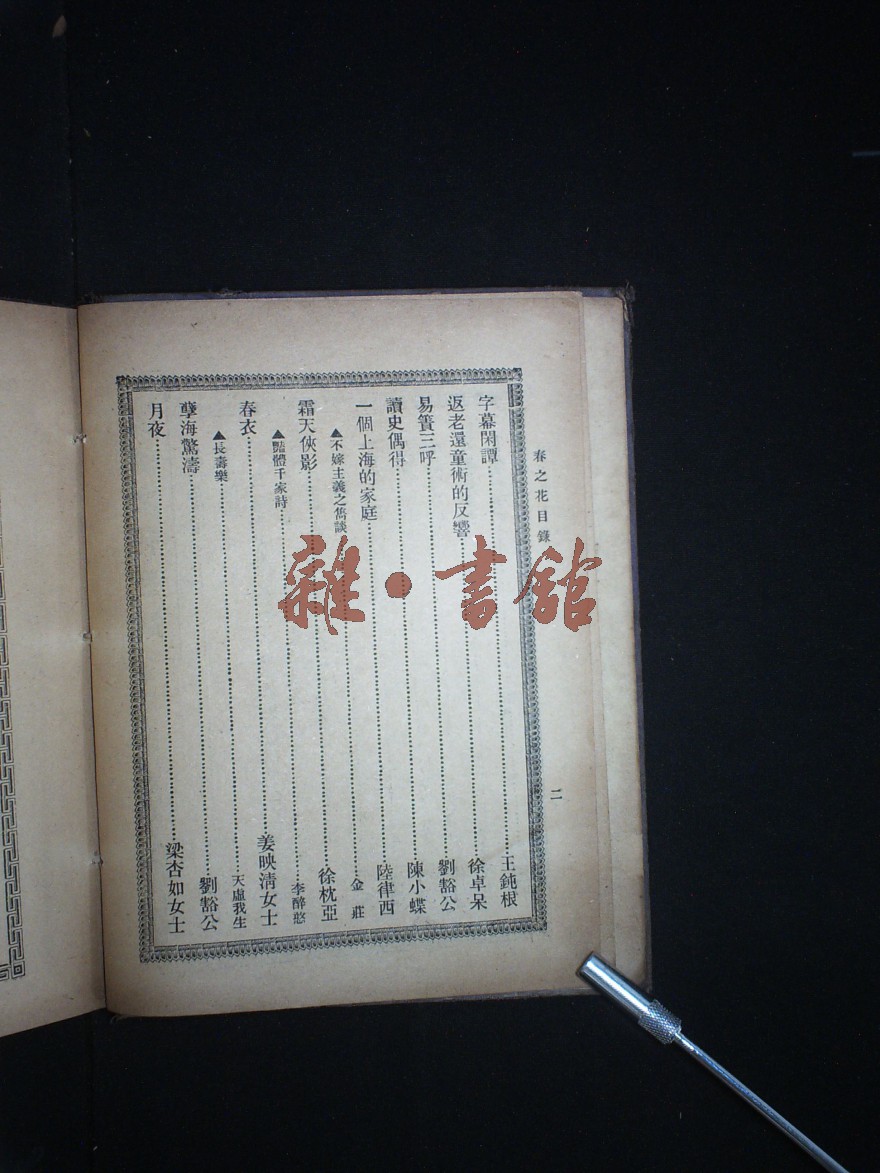 春之花目錄
二
字幕閑譚……王鈍根
返老還童術的反響……徐卓呆
易簀三呼……劉豁公
讀史偶得……陳小蝶
一個上海的家庭……陸律西
▲不嫁主義之雋談……金莊
霜天俠影……徐枕亞
▲豔體千家詩……李醉愁
春衣……姜映淸女士
▲長壽樂……天虛我生
孽海驚濤……劉豁公
月夜……梁杏如女士
雜·書舘